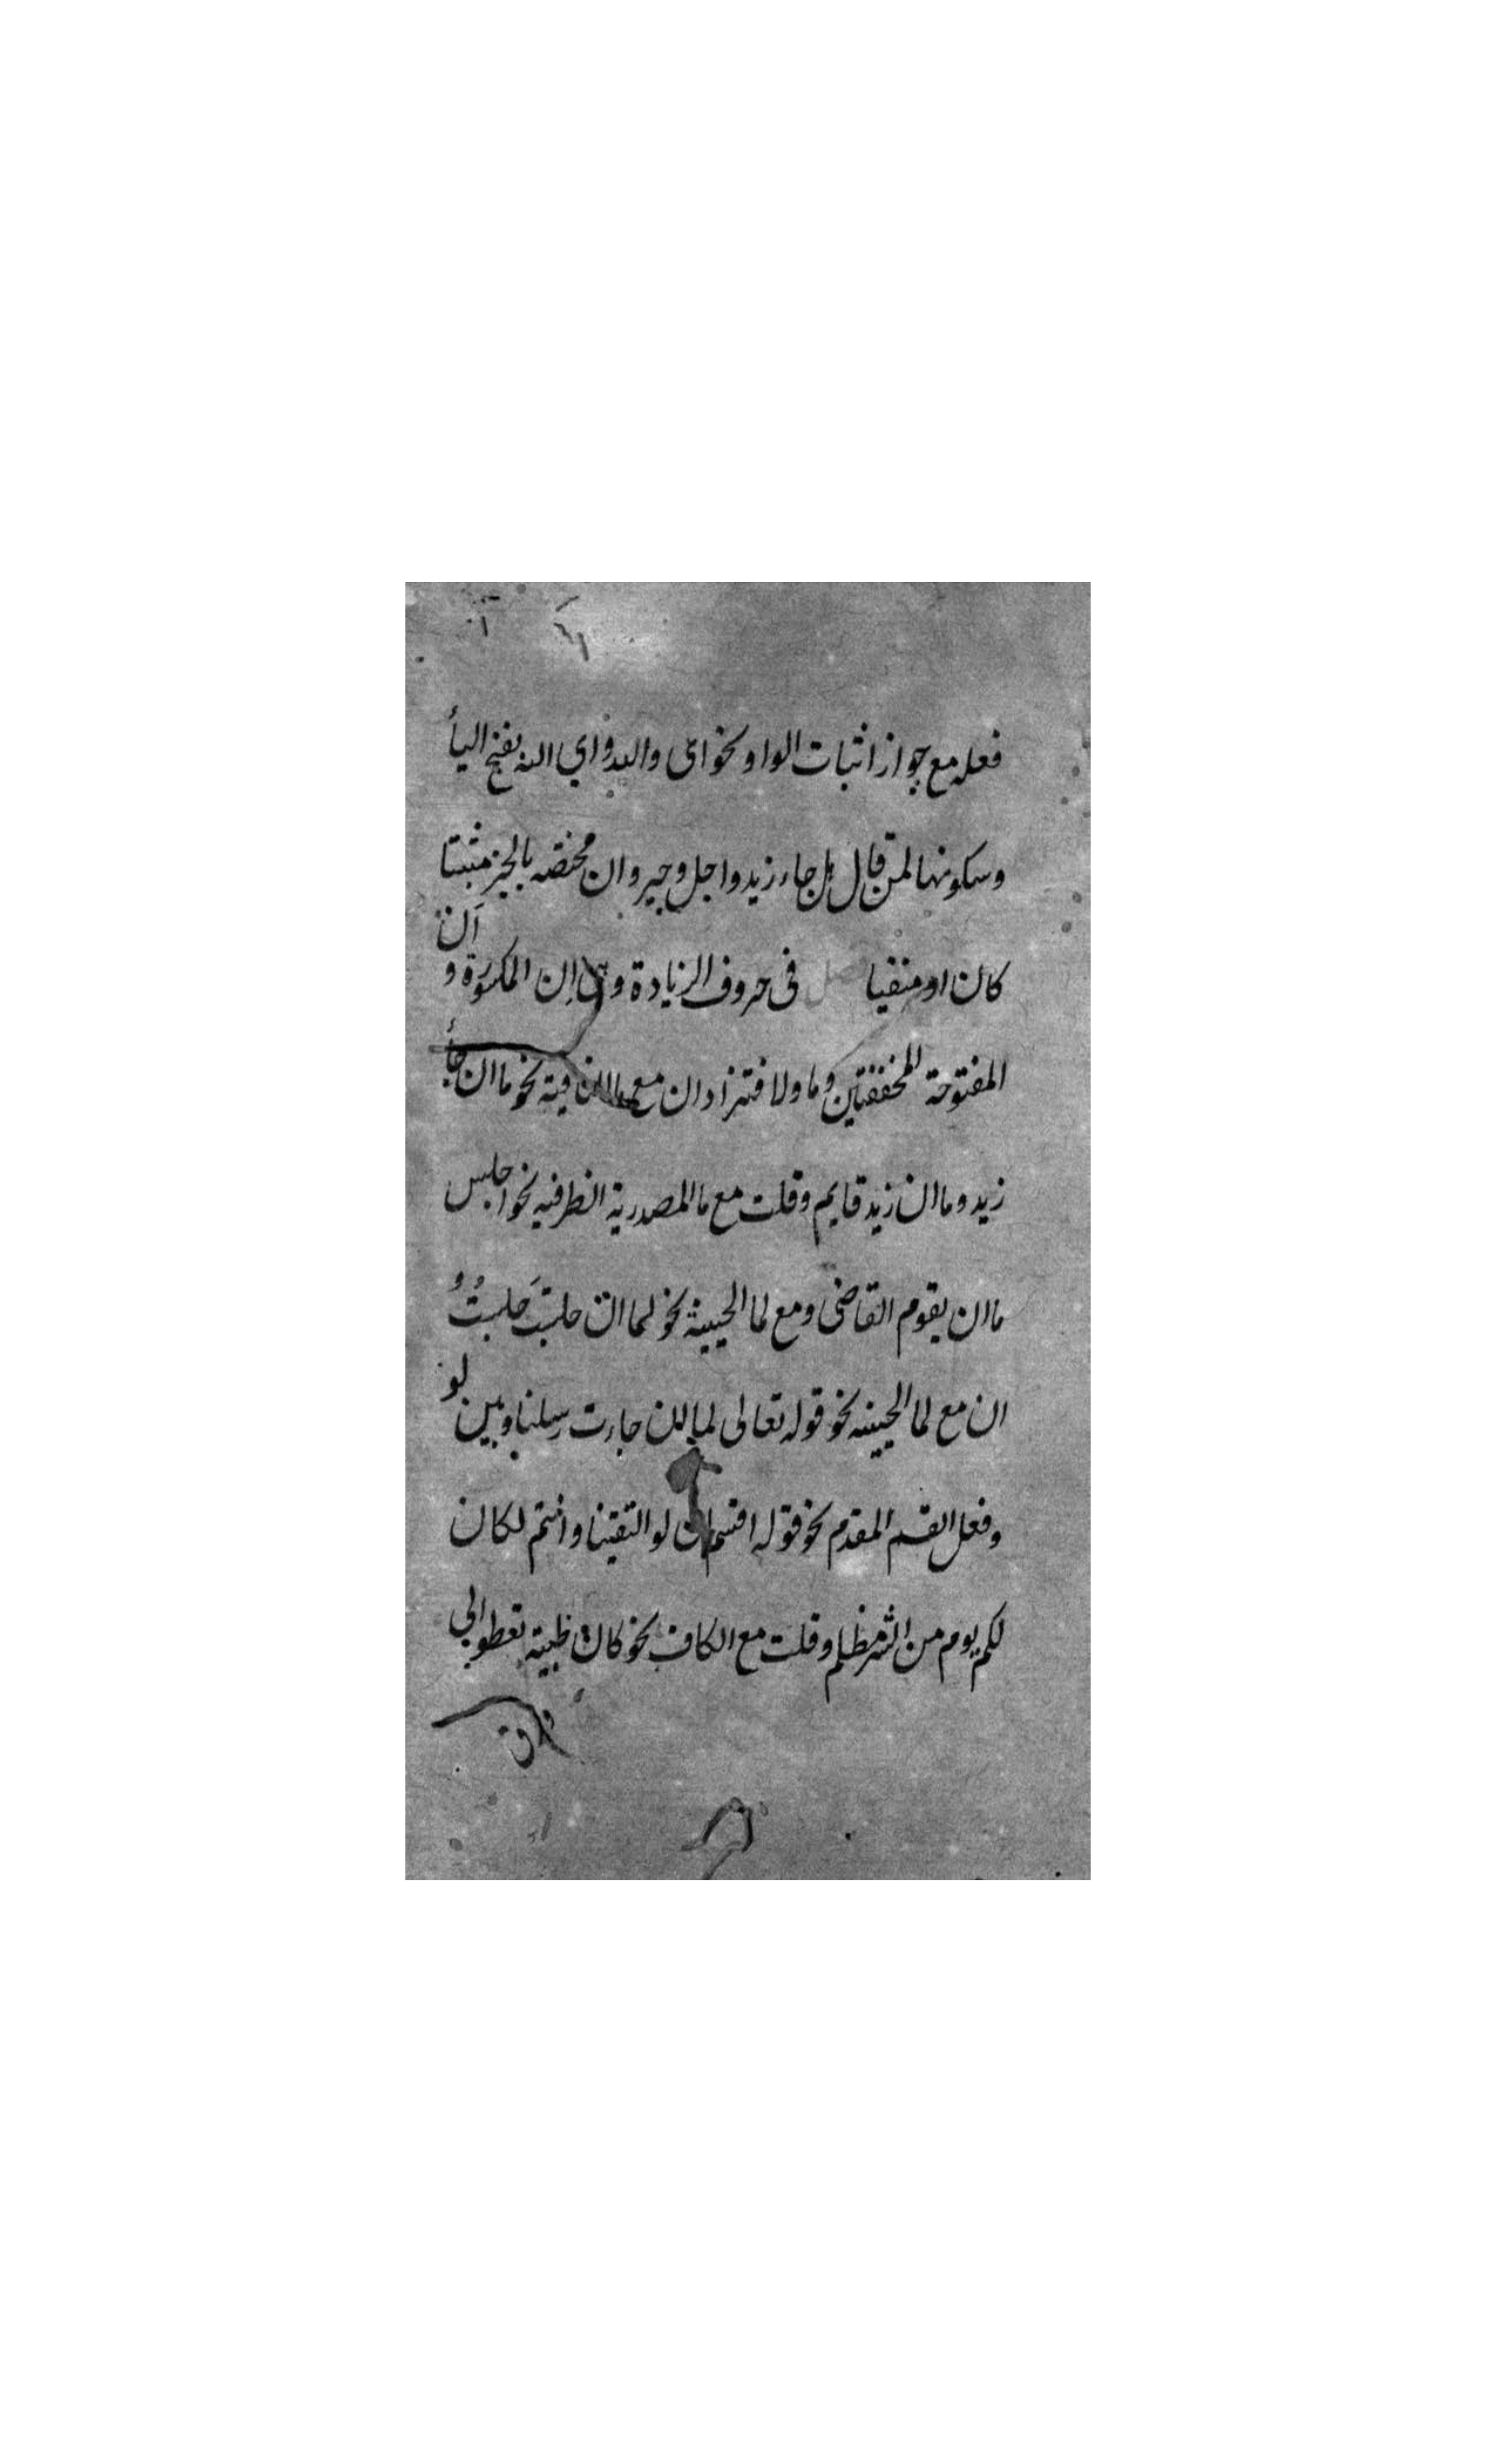 فعله مع جواز اثبات الواو نحو اى والله واي الله بفتح اليأ
وسكونها لمن قال هل جاء زيد واجل وجير وان مختصه بالخبر مثبتا
كان او منفيا فصل فى حروف الزيادة وهى اِن المكسورة و اَن
المفتوحة المخففتين وما ولا فتزاد ان مع ما النافية نحو ما ان جأ
زيد وما ان زيد قايم وقلت مع ما المصدرية الظرفيه نحو اجلس
ما ان يقوم القاضى ومع لما الحينية نحو لما ان جلستَ جلستُ و
ان مع لما الحينيه نحو قوله تعالى لما ان جاءت رسلنا وبين لو
وفعل القسم المقدم نحو قوله اقسم ان لو التقينا وانتم لكان
لكم يوم من الشر مظلم وقلت مع الكاف نحو كان ظبية تعطو الى